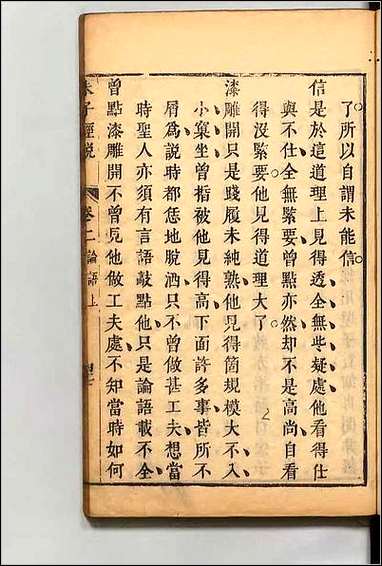 了所以自謂未能信
信是於這道理上見得透全無些疑處他看得仕
與不仕全無緊要曾點亦然却不是高尚自看
得沒緊要他見得道理大了
漆雕開只是踐履未純熟他見得箇規模大不入
小窠坐曾指被他見得高下面許多事皆所不
屑爲說時都恁地脫洒只不曾做甚工夫想當
時聖人亦須有言語敲點他只是論語載不全
曾點漆雕開不曾見他做工夫處不知當時如何
朱子經說 卷二 論語上